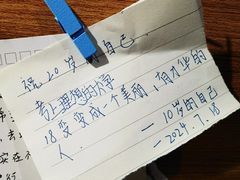 祝20岁的自己
考上理想的大学
18变变成一个美丽,有才华的
人.
— 10岁的自己
— 2024.7.18